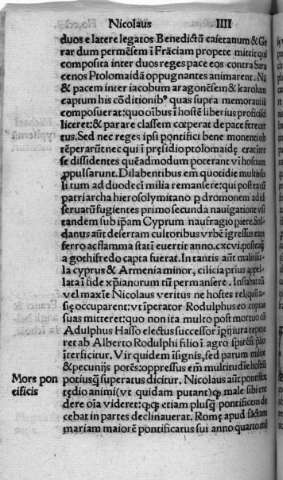 Nicolaus IIII
duos e latere legatos Benedictũ caietanum & Ge
rardum permẽsem ĩ Frãciam propere mittit qui
composita inter duos reges pace eos contra Sara
cenos Ptolomaidã oppugnantes animarent. Nã
& pacem inter iacobum aragonẽsem & karolum
captum his cõditionibꝰ quas supra memorauiũ
composuerat: quo oĩbus ĩ hostẽ liberius proficisci
liceret: & parare classem cœperat de pace
tus. Sed nec reges ipsi pontifici bene monenti ob
tẽperarũt nec qui ĩ presidio ptolomaidę erant
se dissidentes quẽadmodum poterant vĩ hostium
ꝓpulsarunt. Dilabentibus em quottidie
li tum ad duodecĩ milia remansere: qui postea cũ
patriarcha hierosolymitano p dromonem
seruarũ fugientes primo secunda nauigatione vsi
tandem sub ipam Cyprum naufragio piere. Sol
danus aũt desertam cultoribus vrbẽ igressus eam
ferro ac flamma statĩ euertit anno .cxcvi. postqᷓ
a gothifredo capta fuerat. In tantis aũt
la cyprus & Armenia minor, cilicia prius appel
lata ĩ fide xp̃ianorum tũ permansere.
vel maxĩe Nicolaus veritus ne hostes reliqua
occuparent: vt ĩperator Rodulphus eo copias
suas mitteret: quo non ita multo post mortuo
Adulphus Hasso electus successor
ret ab Alberto Rodulphi filio ĩ agro spirẽsi
ĩterficitur. Vir quidem ĩsignis, sed parum militibꝰ
& pecunijs potẽs: oppressus em multitudĩe hostiũ
Mores pon potiusqᷓ superatus dicitur. Nicolaus aũt pontifex
tificis tędio animi (vt quidam putant) qᷓ male sibi
dere oĩa videret: qᷓqᷓ etiam plusqᷓ pontificem de
cebat in partes declinauerat. Romę apud sãctam
mariam maiorẽ pontificatus sui anno quarto